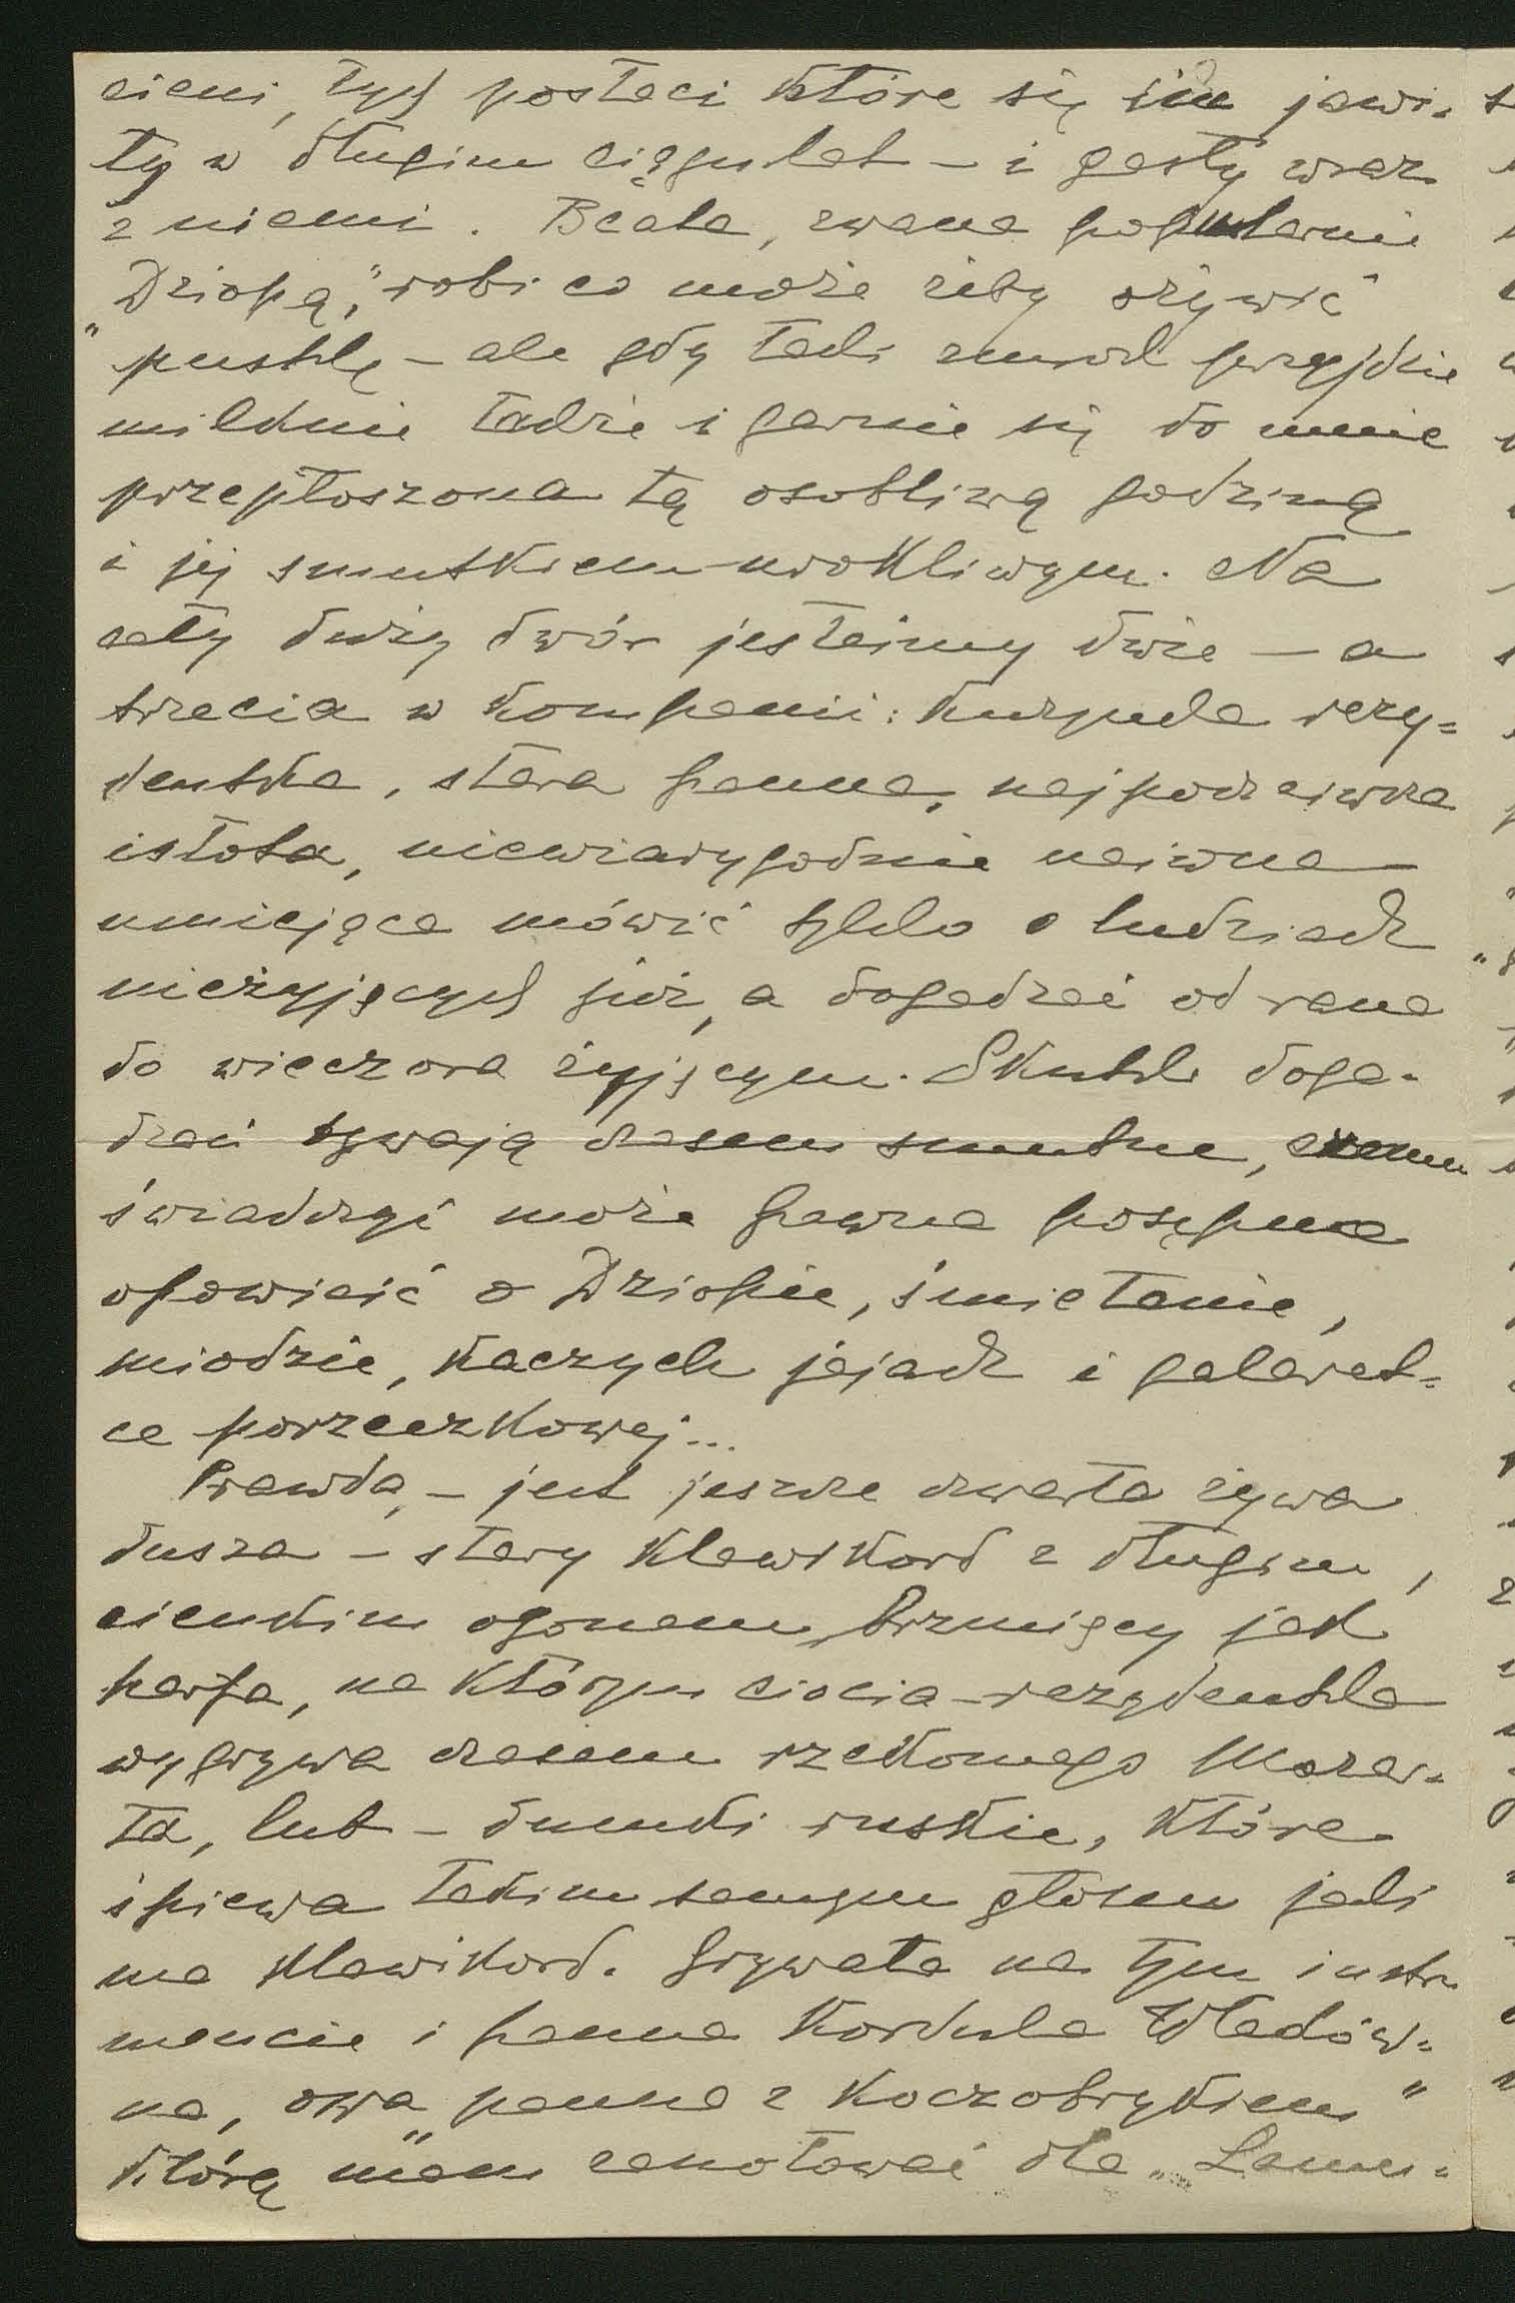 cieni, tych postaci które się tu jawi-
ły w długim ciągu lat – i gasły wraz
z niemi. Beata, zwana popularnie
"Dziopą," robi co może żeby ożywić
pustkę – ale gdy taki zmrok przyjdzie
milknie także i garnie się do mnie
przepłoszona tą osobliwą godziną
i jej smutkiem urokliwym. Na
cały duży dwór jesteśmy dwie – a
trzecia w kompanii: kuzynka rezy-
dentka, stara panna, najpoczciwsza
istota, niewiarygodnie naiwna
umiejąca mówić tylko o ludziach
nieżyjących już, a dogadzać od rana
do wieczora żyjącym. Skutki doga-
dzań bywają czasem smutne, czemu
świadczyć może pewna posępna
opowieść o Dziopie, śmietanie,
miodzie, kaczych jajach i galaret-
ce porzeczkowej...
Prawda, – jest jeszcze czwarta żywa
dusza – stary klawikord z długim,
cienkim ogonem, brzmiący jak
harfa, na którym ciocia-rezydentka
wygrywa czasem rzekomego Mozar-
ta, lub – dumki ruskie, które
śpiewa takim samym głosem jaki
ma klawikord. Grywała na tym instru
mencie i panna Kordula Władów-
na, owa "panna z koczobrykiem"
którą mam zanotować dla "Lamu-